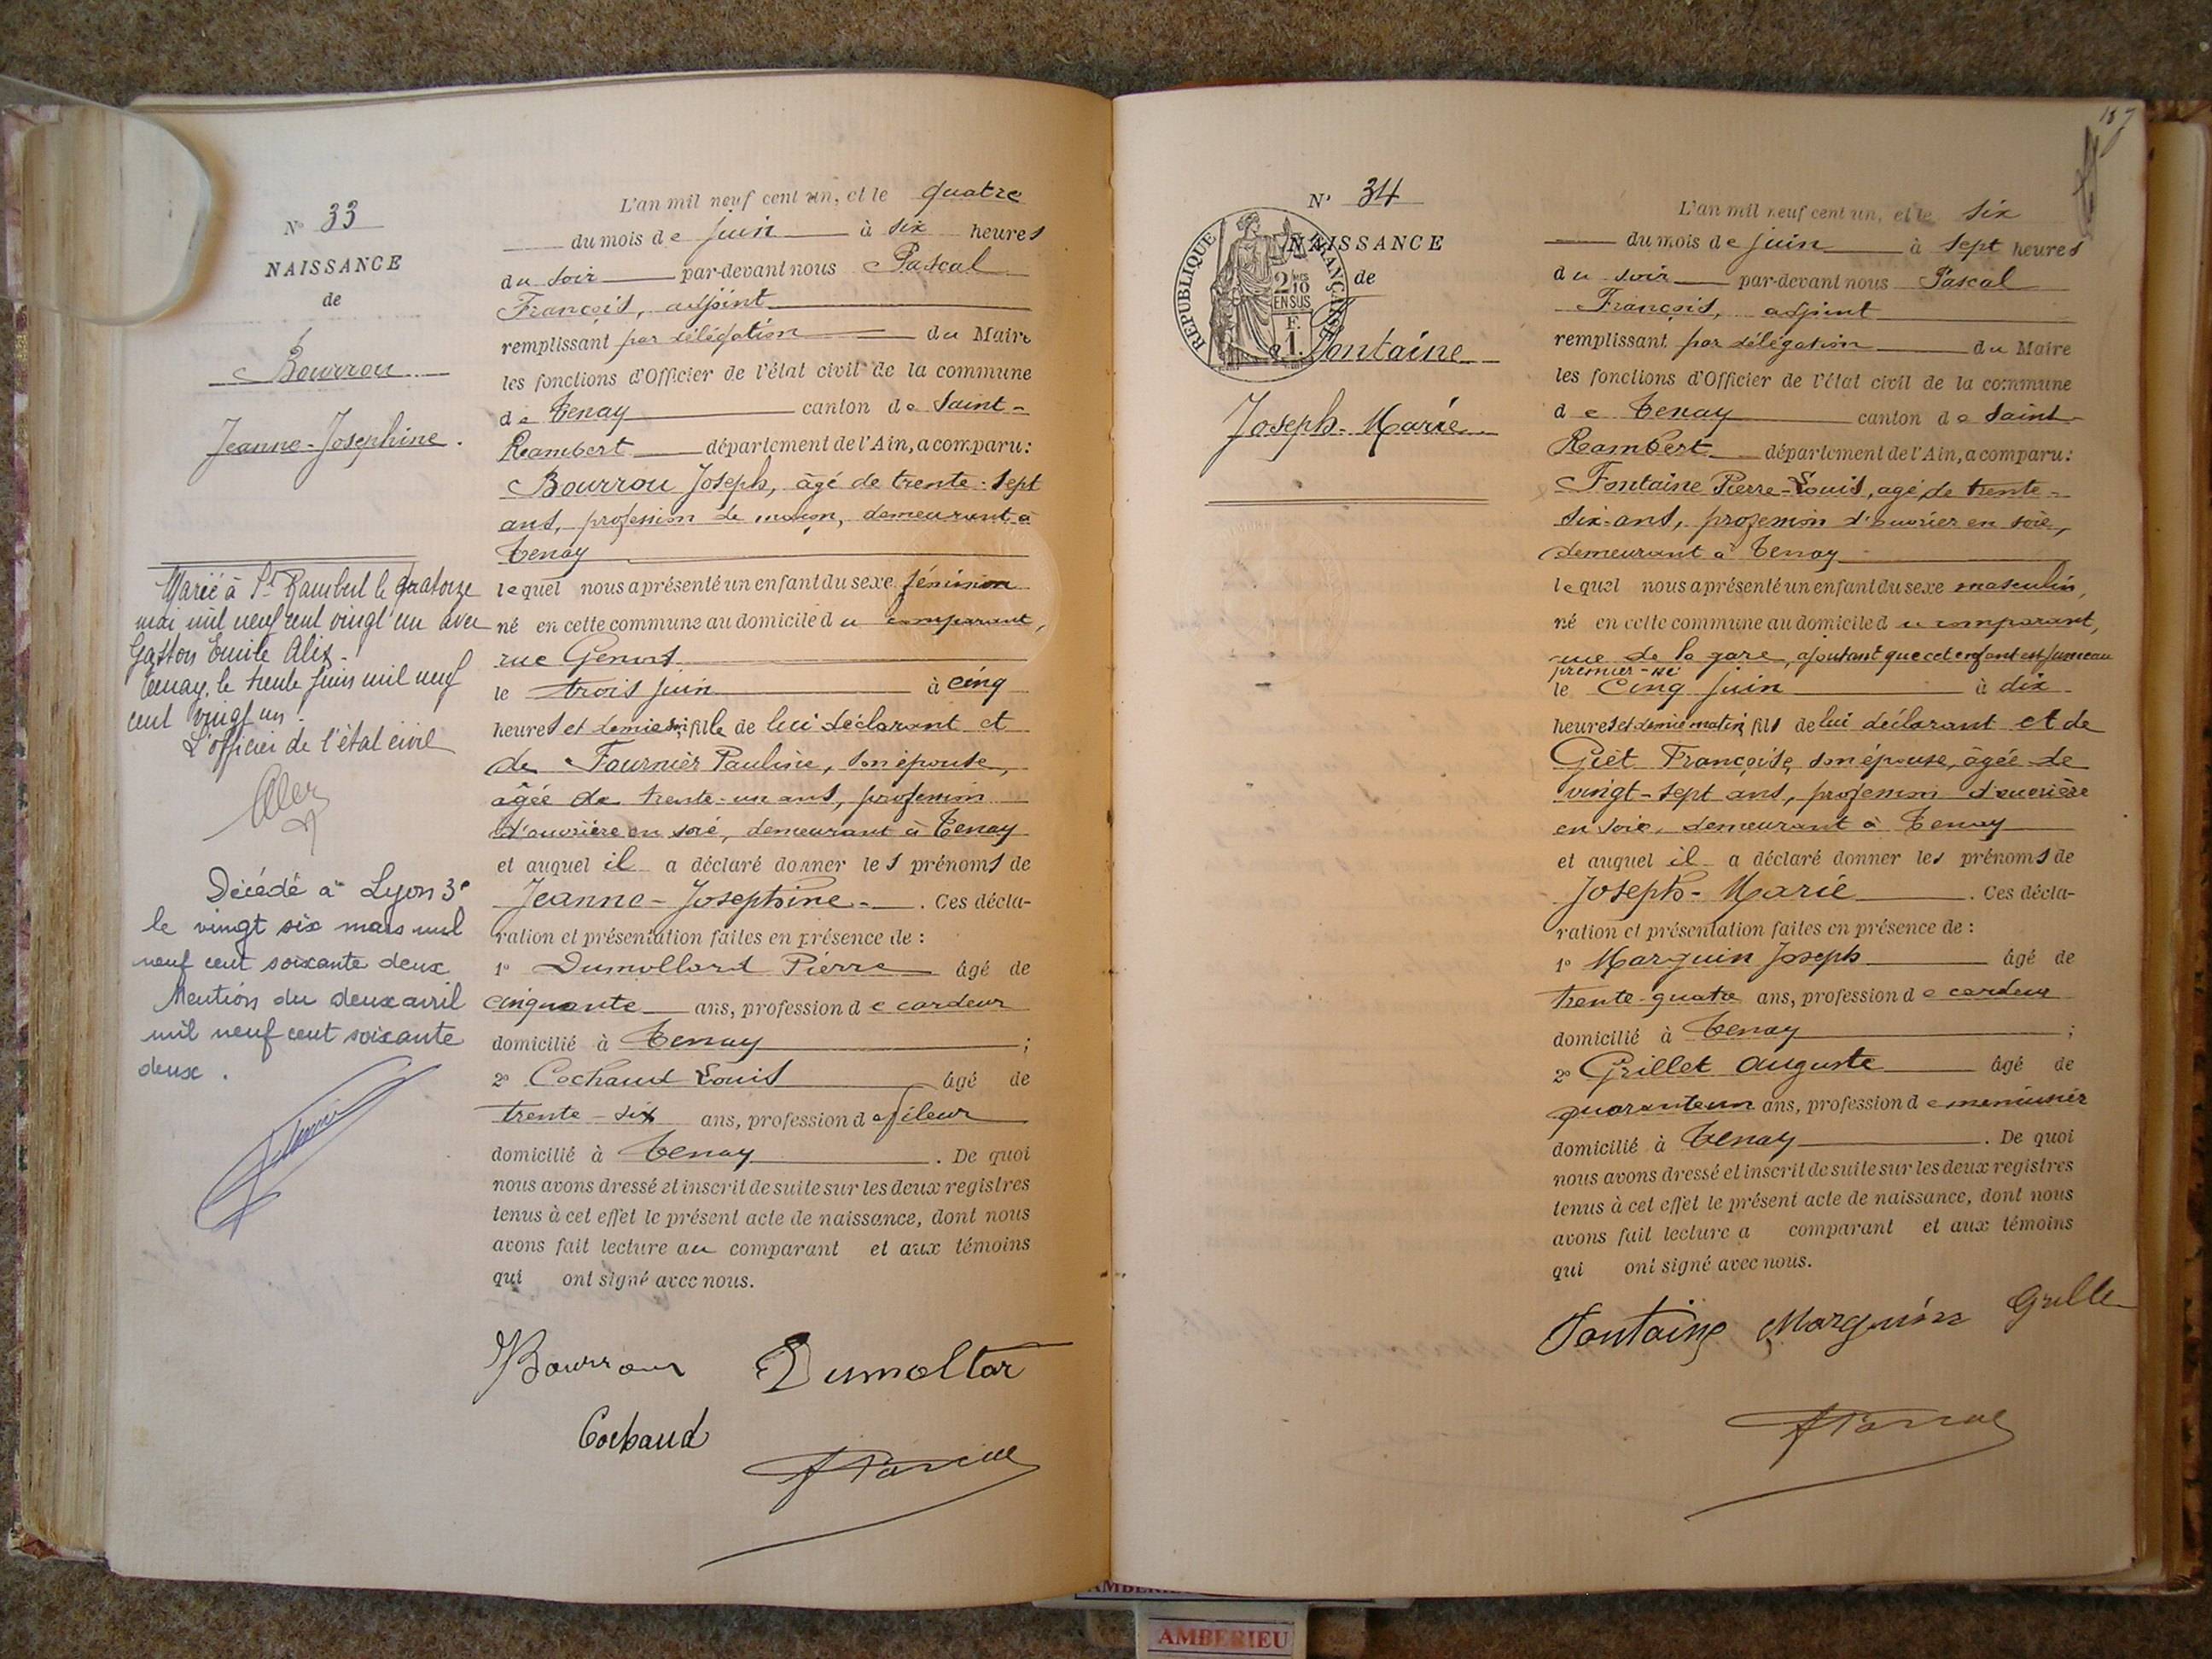 N° 33
NAISSANCE
de
Bourrou
Jeanne-Josephine.
Marié à St Rambert le quatorze
mai mil neuf cent vingt'un avec
Gaston Emile Alix.
Tenay, le trente juin mil neuf
cent vingt un.
L'officier de l'état civil
Décédé à Lyon 3e
le vingt six mars mil
neuf cent soixante deux
Mention du deux avril
mil neuf cent soixante
deux.
L'an mil neuf cent un, et le quatre
du mois de juin à six heures
du soir par-devant nous Pascal
François, adjoint
remplissant par délégation du Maire
les fonctions d'Officier de l'état civil de la commune
de Tenay canton de Saint-
Rambert département de l'Ain, a comparu:
Bourrou Joseph, âgé de trente-sept
ans, profession de maçon, demeurant à
Tenay
lequel nous a présenté un enfant du sexe féminin
né en cette commune au domicile du comparant,
rue
le trois juin à cinq
heures et demie fille de lui déclarant et
de Fournier Pauline, son épouse,
âgée de trente-un ans, profession
d'ouvrière en soie, demeurant à Tenay
et auquel il a déclaré donner les prénoms de
Jeanne-Josephine. Ces décla-
ration et présentation faites en présence de :
1° Dumollard Pierre âgé de
cinquante ans, profession de cardeur
domicilié à Tenay ;
2° Cochaud Louis âgé de
trente-six ans, profession de fileur
domicilié à Tenay . De quoi
nous avons dressé et inscrit de suite sur les deux registres
tenus à cet effet le présent acte de naissance, dont nous
avons fait lecture au comparant et aux témoins
qui ont signé avec nous.
Bourrou Dumollar
Cochaud
F Pascal
187
N° 34
NAISSANCE
de
RÉPUBLIQUE FRANÇAISE
2/10 EN SUS
F. 1.
Fontaine
Joseph-Marie
L'an mil neuf cent un, et le six
du mois de juin à sept heures
du soir par-devant nous Pascal
François, adjoint
remplissant par délégation du Maire
les fonctions d'Officier de l'état civil de la commune
de Tenay canton de Saint-
Rambert département de l'Ain, a comparu:
Fontaine Pierre-Louis, agé de trente-
six-ans, profession d'ouvrier en soie,
demeurant à Tenay
lequel nous a présenté un enfant du sexe masculin,
né en cette commune au domicile du comparant,
rue de la gare, ajoutant que cet enfant est jumeau
premier-né
le cinq juin à dix
heures et demie matin, fils de lui déclarant et de
Giét Françoise, son épouse, âgée de
vingt-sept ans, profession d'ouvrière
en soie, demeurant à Tenay
et auquel il a déclaré donner les prénoms de
Joseph-Marie . Ces décla-
ration et présentation faites en présence de :
1° Marguin Joseph âgé de
trente-quatre ans, profession de cardeur
domicilié à Tenay ;
2° Grillet Auguste âgé de
quarante un ans, profession de menuisier
domicilié à Tenay . De quoi
nous avons dressé et inscrit de suite sur les deux registres
tenus à cet effet le présent acte de naissance, dont nous
avons fait lecture a comparant et aux témoins
qui ont signé avec nous.
Fontaine Marguin Grillet
F Pascal
AMBERIEU